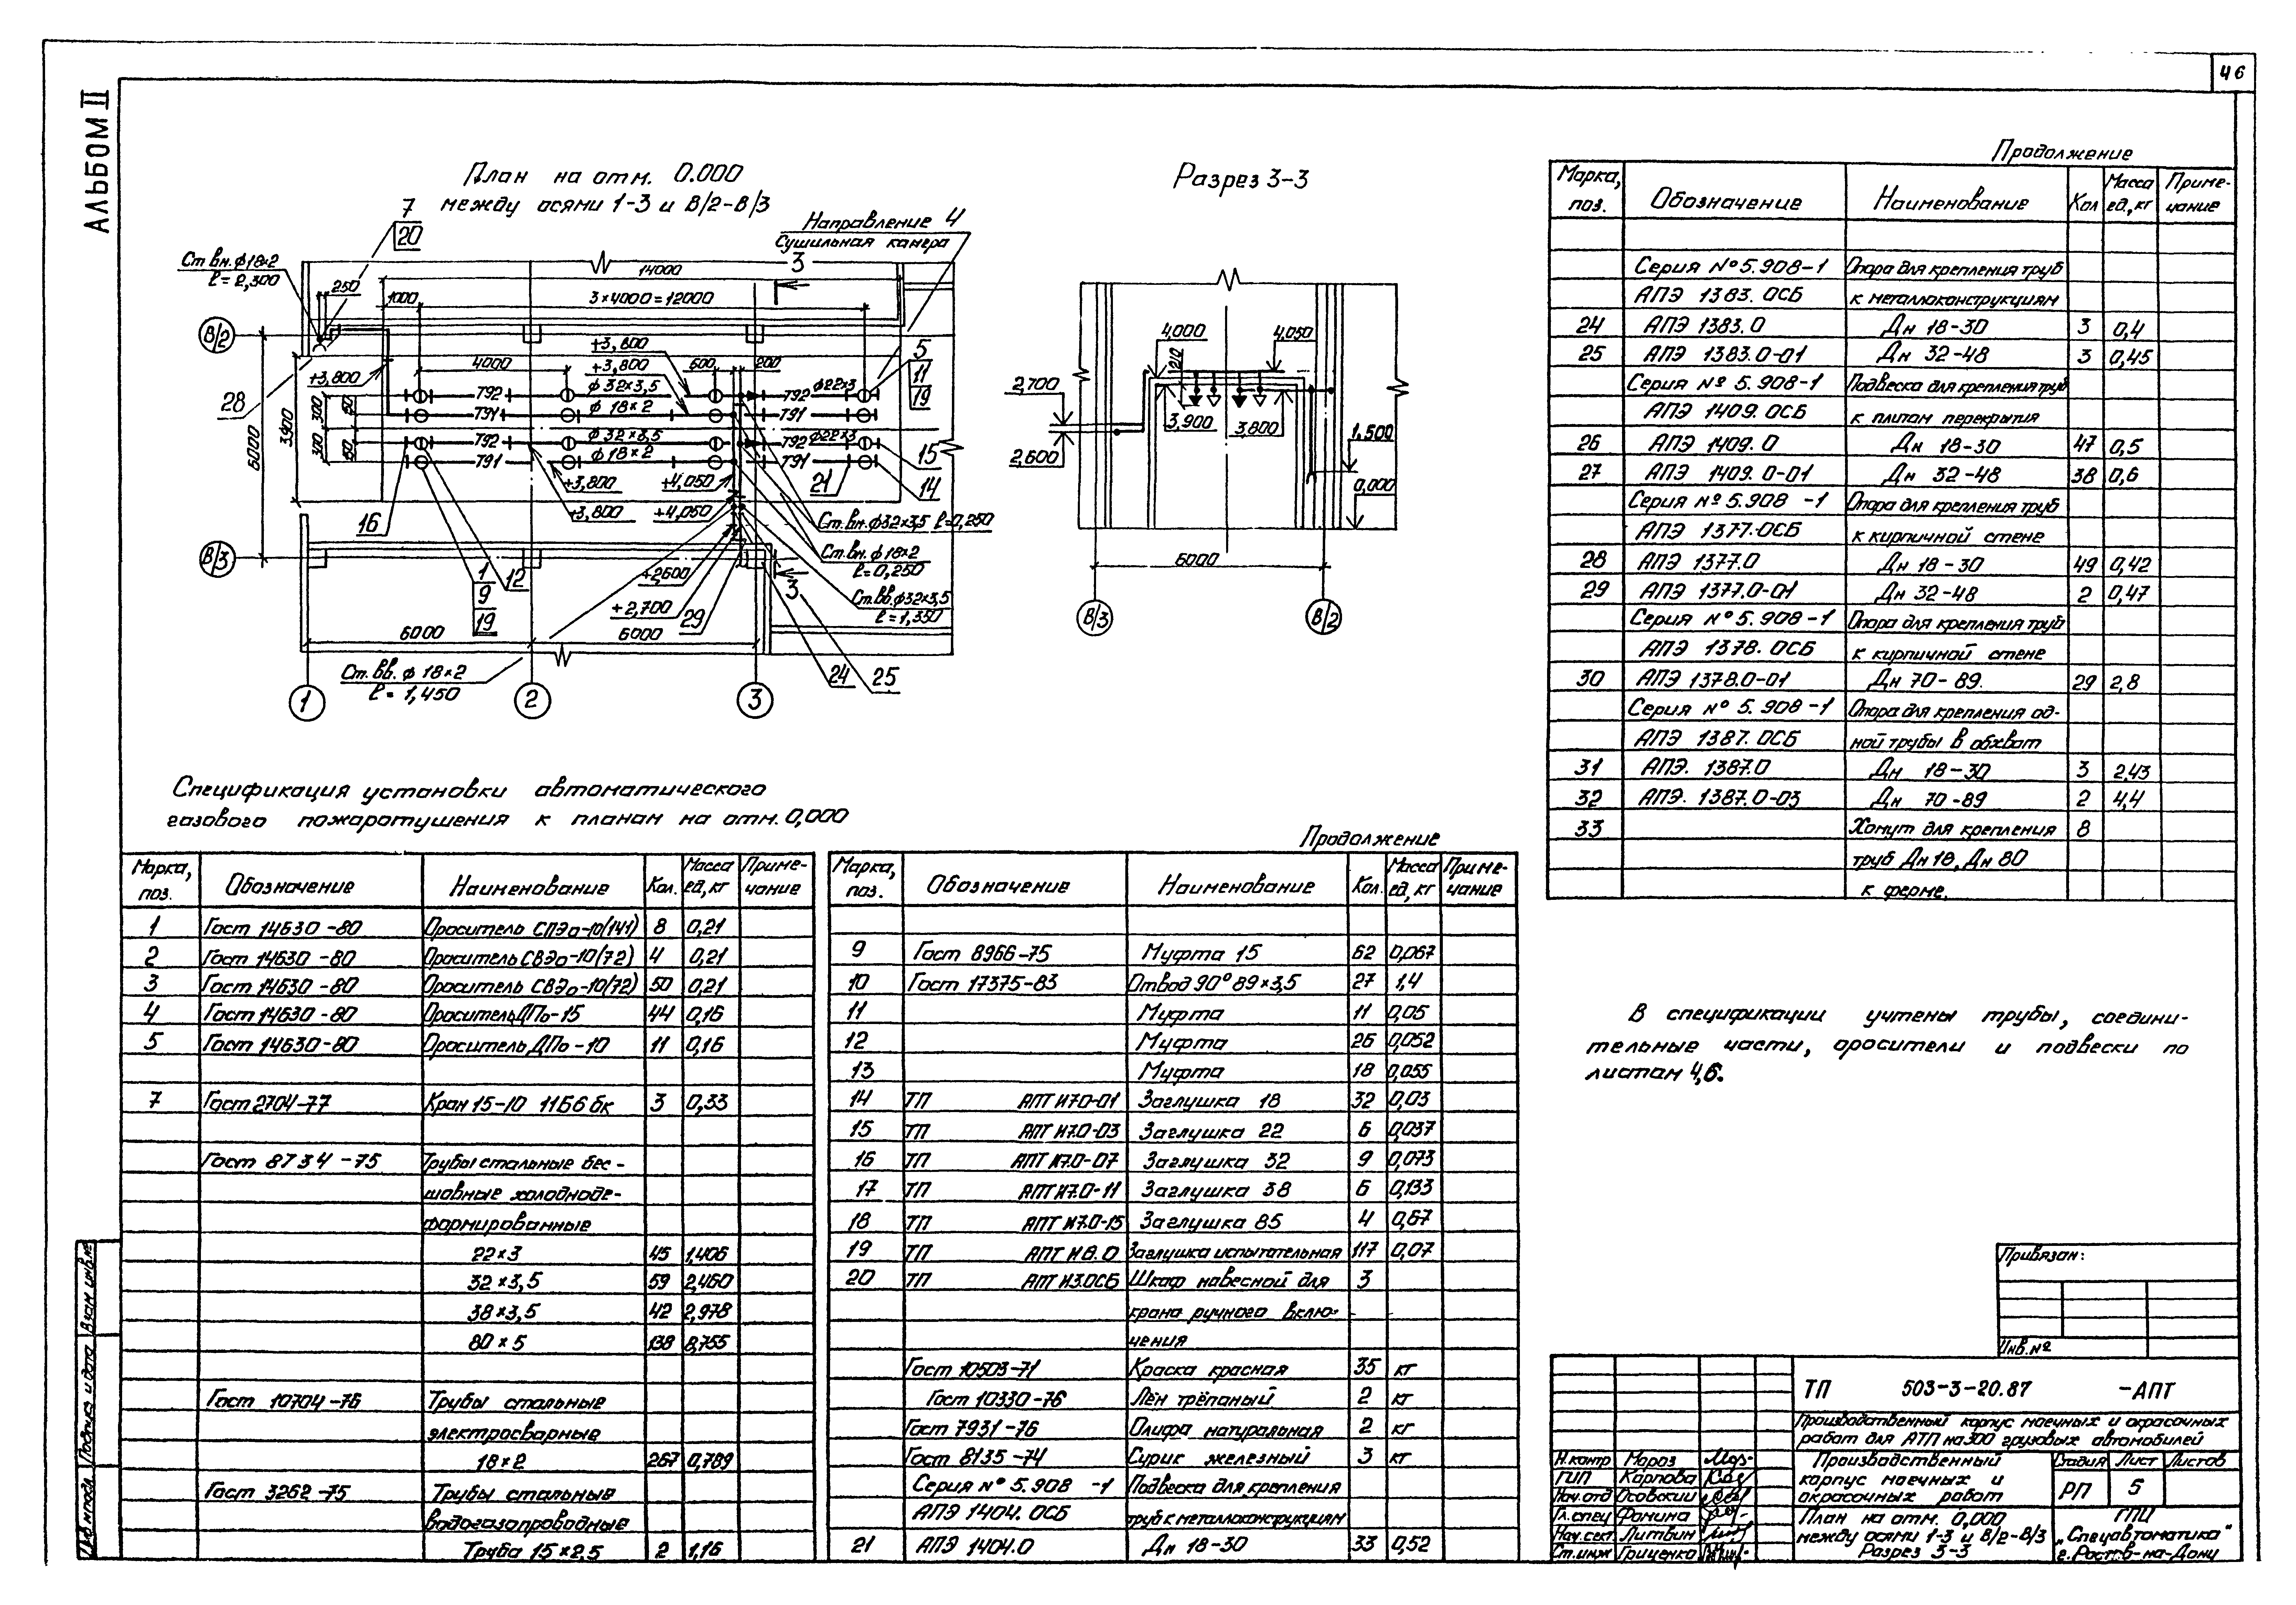 46
АЛЬБОМ II
План на отм. 0.000
между осями 1-3 и В/2-В/3
7
20
Ст вн. ф18×2
l=2,300
Направление 4
Сушильная камера
3
14000
250
1000
3×4000=12000
В/2
+3,800
4000
+3,800
600
200
5
11
19
+3,800
28
Т92
ф32×3,5
Т92
ф22×3
Т91
ф18×2
Т91
300
150
3900
6000
Т92
ф32×3,5
Т92
ф22×3
15
300
150
Т91
ф18×2
Т91
+3,800
+4,050
21
14
16
+3,800
+4,050
Ст. вн. ф32×3,5 l=0,250
Ст. вн. ф18×2
l=0,250
В/3
1
9
19
12
+2,600
3
Ст. вв. ф32×3,5
l=1,350
+2,700
29
6000
6000
Ст. вв. ф18×2
l=1,450
24
25
1
2
3
Разрез 3-3
4,000
4,050
210
2,700
3,900
3,800
1,500
2,600
0,000
6000
В/3
В/2
Продолжение
Марка, поз.
Обозначение
Наименование
Кол
Масса ед, кг
Приме-чание
Серия №5.908-1 Опора для крепления труб
АПЭ 1383.ОСБ к металлоконструкциям
24 АПЭ 1383.0 Дн 18-30 3 0,4
25 АПЭ 1383.0-01 Дн 32-48 3 0,45
Серия № 5.908-1 Подвеска для крепления труб
АПЭ 1409.ОСБ к плитам перекрытия
26 АПЭ 1409.0 Дн 18-30 47 0,5
27 АПЭ 1409.0-01 Дн 32-48 38 0,6
Серия № 5.908 -1 Опора для крепления труб
АПЭ 1377.ОСБ к кирпичной стене
28 АПЭ 1377.0 Дн 18-30 49 0,42
29 АПЭ 1377.0-01 Дн 32-48 2 0,47
Серия № 5.908-1 Опора для крепления труб
АПЭ 1378.ОСБ к кирпичной стене
30 АПЭ 1378.0-01 Дн 70-89. 29 2,8
Серия № 5.908-1 Опора для крепления од-
АПЭ 1387.ОСБ ной трубы в обхват
31 АПЭ. 1387.0 Дн 18-30 3 2,43
32 АПЭ. 1387.0-03 Дн 70-89 2 4,4
33 Хомут для крепления 8
труб Дн 18, Дн 80
к ферме.
Спецификация установки автоматического
газового пожаротушения к планам на отм. 0,000
Марка, поз.
Обозначение
Наименование
Кол.
Масса ед, кг
Приме-чание
1 Гост 14630-80 Ороситель СПЭо-10(141) 8 0,21
2 Гост 14630-80 Ороситель СВЭо-10(72) 4 0,21
3 Гост 14630-80 Ороситель СВЭо-10(72) 50 0,21
4 Гост 14630-80 Ороситель ДПо-15 44 0,16
5 Гост 14630-80 Ороситель ДПо-10 11 0,16
7 Гост 2704-77 Кран 15-10 11Б6бк 3 0,33
Гост 8734-75 Трубы стальные бес-
шовные холодноде-
формированные
22×3 45 1,406
32×3,5 59 2,460
38×3,5 42 2,978
80×5 138 8,755
Гост 10704-76 Трубы стальные
электросварные
18×2 267 0,789
Гост 3262-75 Трубы стальные
водогазопроводные
Труба 15×2,5 2 1,16
Продолжение
Марка, поз.
Обозначение
Наименование
Кол.
Масса ед, кг
Приме-чание
9 Гост 8966-75 Муфта 15 62 0,067
10 Гост 17375-83 Отвод 90° 89×3,5 27 1,4
11 Муфта 11 0,05
12 Муфта 26 0,052
13 Муфта 18 0,055
14 ТП АПТ И7.0-01 Заглушка 18 32 0,03
15 ТП АПТ И7.0-03 Заглушка 22 6 0,037
16 ТП АПТ И7.0-07 Заглушка 32 9 0,073
17 ТП АПТ И7.0-11 Заглушка 38 6 0,133
18 ТП АПТ И7.0-15 Заглушка 85 4 0,67
19 ТП АПТ И8.0 Заглушка испытательная 117 0,07
20 ТП АПТ И3.ОСБ Шкаф навесной для 3
крана ручного вклю-
чения
Гост 10503-71 Краска красная 35 кг
Гост 10330-76 Лён трёпаный 2 кг
Гост 7931-76 Олифа натуральная 2 кг
Гост 8135-74 Сурик железный 3 кг
Серия № 5.908 -1 Подвеска для крепления
АПЭ 1404.ОСБ труб к металлоконструкциям
21 АПЭ 1404.0 Дн 18-30 33 0,52
В спецификации учтены трубы, соедини-
тельные части, оросители и подвески по
листам 4,6.
Привязан:
Инв. №
ТП 503-3-20.87 -АПТ
Производственный корпус моечных и окрасочных
работ для АТП на 300 грузовых автомобилей
Н.контр Мороз
ГИП Карпова
Нач.отд Осовский
Гл.спец Фомина
Нач.сект. Литвин
Ст.инж Гриценко
Производственный
корпус моечных и
окрасочных работ
Стадия Лист Листов
РП 5
План на отм. 0,000
между осями 1-3 и В/2-В/3
Разрез 3-3
ГПИ
„Спецавтоматика"
г. Ростов-на-Дону
Инв № подл. Подпись и дата Взам инв. №